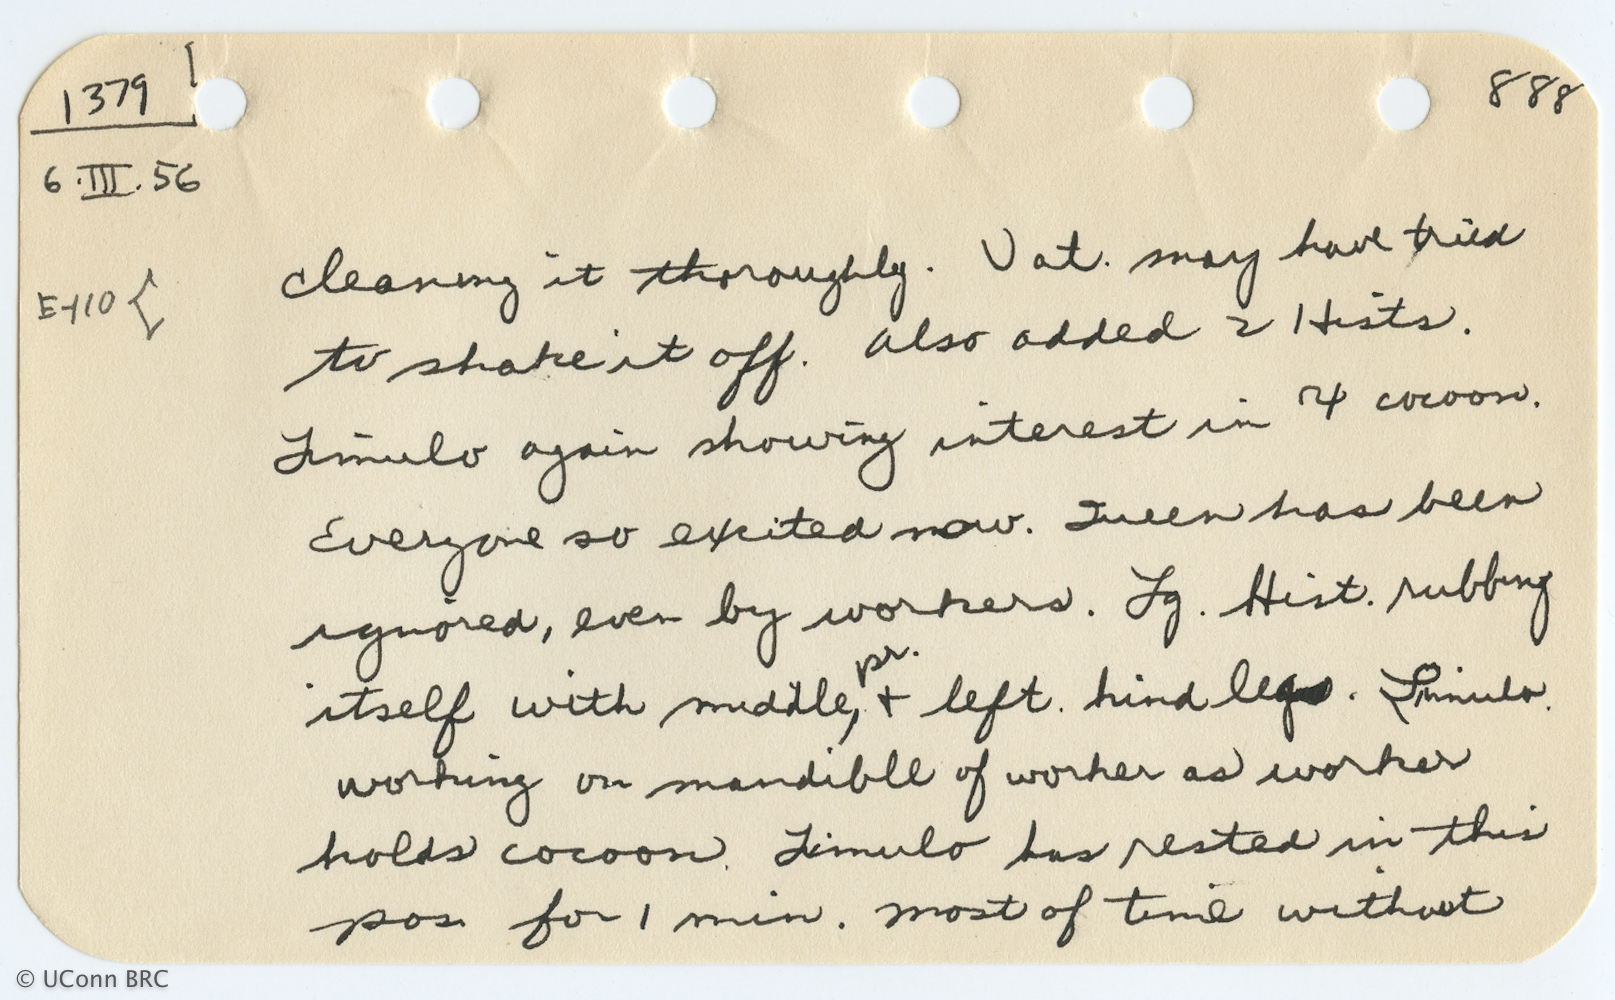 1379
888
6.III.56
E-110
cleaning it thoroughly. Vat. may have tried
to shake it off. Also added 2 Hists.
Limulo again showing interest in 4 cocoon.
Everyone so excited now. Queen has been
ignored, even by workers. Lg. Hist. rubbing
itself with middle, pr. + left. hind leg. Limulo.
working on mandible of worker as worker
holds cocoon. Limulo has rested in this
pos. for 1 min. most of time without
© UConn BRC